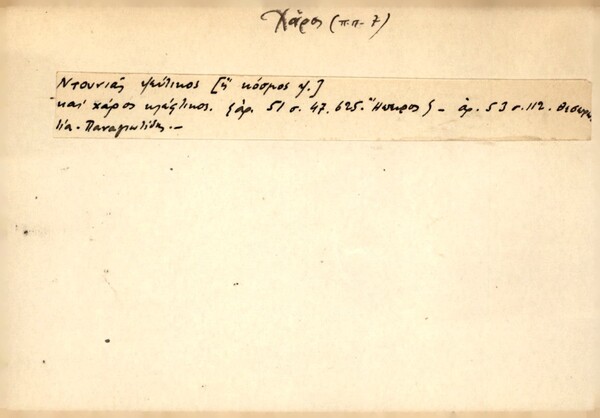 Χάρος (π.π. 7)
Ντουνιάς ψεύτικος [ἢ κόσμος ψ.]
και χάρος κλέφτικος. {ἀρ. 51 σ. 47. 625. Ἤπειρος} - ἀρ. 53 σ. 112. Θεσπρω
τία. Παναγιωτίδης. -